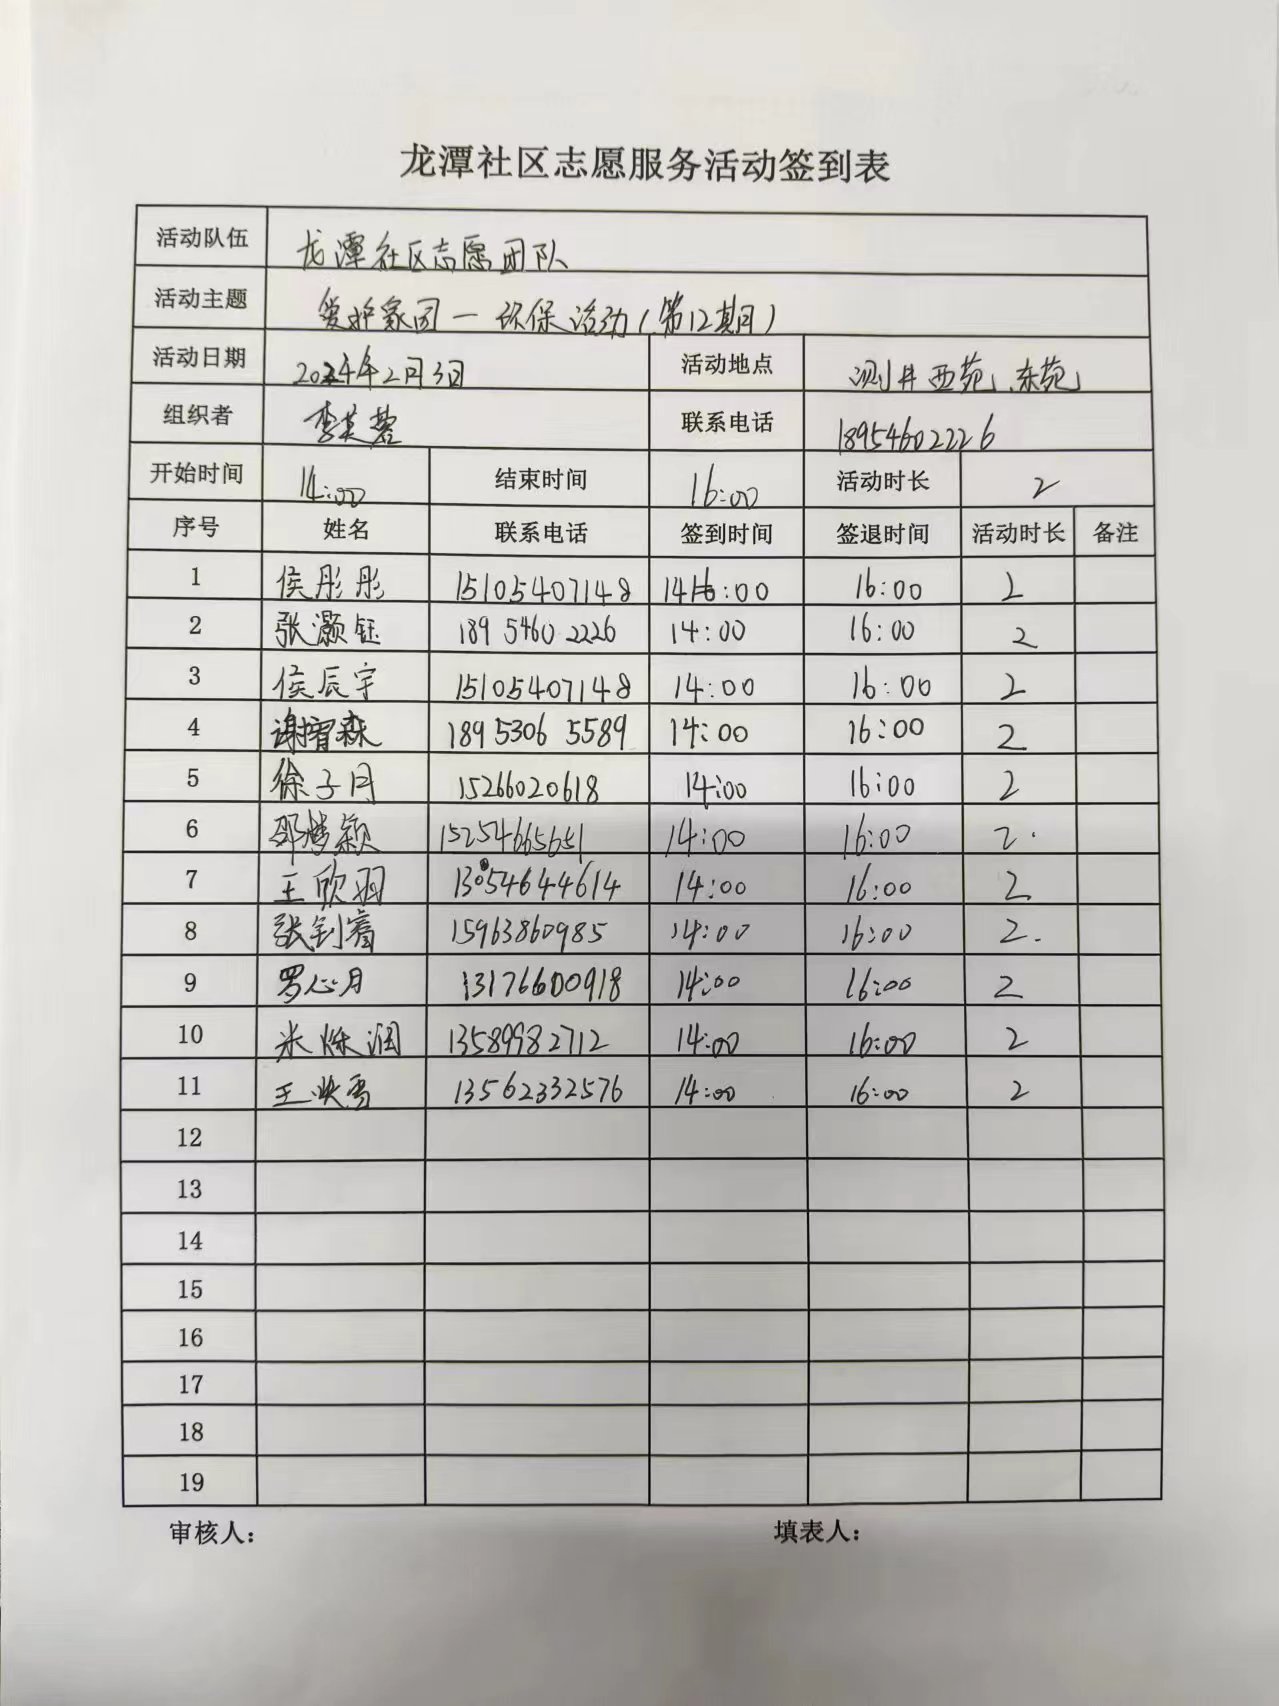 龙潭社区志愿服务活动签到表
活动队伍 龙潭社区志愿团队
活动主题 爱护家园一环保活动(第12期)
活动日期 2024年2月3日 活动地点 测井西苑、东苑
组织者 李芙蓉 联系电话 18954602226
开始时间 14:00 结束时间 16:00 活动时长 2
序号 姓名 联系电话 签到时间 签退时间 活动时长 备注
1 侯彤彤 15105407148 14:00 16:00 2
2 张灏钰 189 5460 2226 14:00 16:00 2
3 侯辰宇 15105407148 14:00 16:00 2
4 谢智森 189 5306 5589 14:00 16:00 2
5 徐子月 15266020618 14:00 16:00 2
6 邵梦颖 15254665651 14:00 16:00 2.
7 王欣羽 13054644614 14:00 16:00 2
8 张钊睿 15963860985 14:00 16:00 2.
9 罗心月 13176600918 14:00 16:00 2
10 米烁润 13589982712 14:00 16:00 2
11 王 13562332576 14:00 16:00 2
12
13
14
15
16
17
18
19
审核人: 填表人: